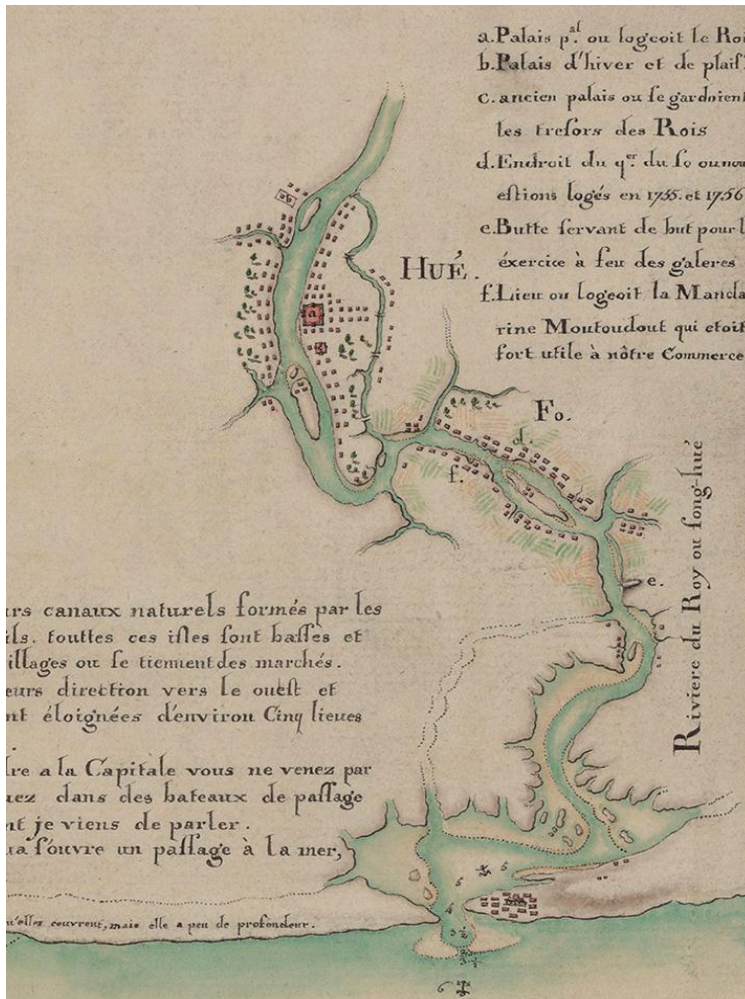 a. Palais p.al ou logeoit le Roi
b. Palais d'hiver et de plaiſ
c. ancien palais ou ſe gardoient
les treſors des Rois
d. Endroit du q.er du fo ou nou
eſtions logés en 1755. et 1756
e. Butte ſervant de but pour l
éxercice à feu des galeres
f. Lieu ou logeoit la Manda
rine Moutoudout qui etoit
fort utile à nôtre Commerce
HUÉ.
a
Fo.
d.
f.
e.
Riviere du Roy ou ſong-hué
urs canaux naturels formés par les
ils. touttes ces iſles ſont baſſes et
illages ou ſe tiennent des marchés.
eurs direction vers le oueſt et
nt éloignées d'environ Cinq lieues
dre a la Capitale vous ne venez par
nez dans des bateaux de paſſage
nt je viens de parler.
ua s'ouvre un paſſage à la mer,
qu'elles couvrent, mais elle a peu de profondeur.
6
6
4
6